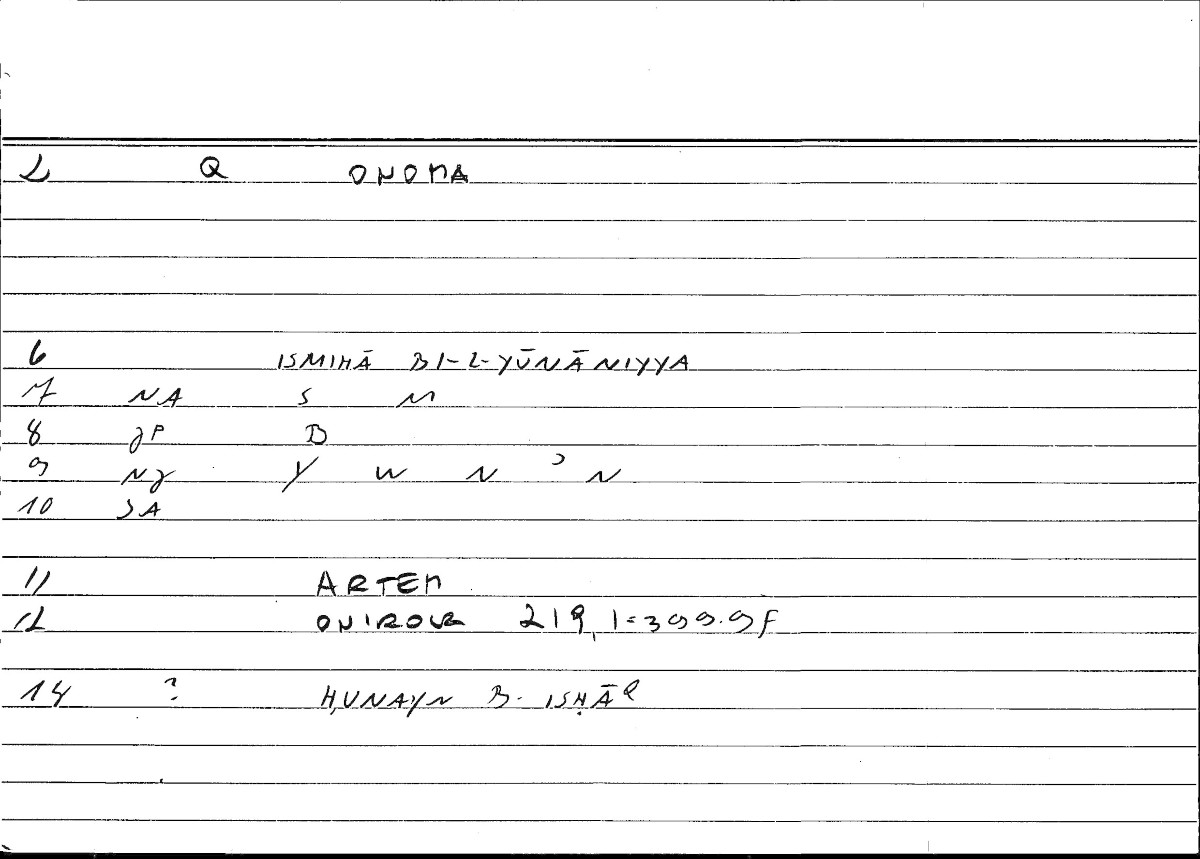 2 Q ONOMA
6 ISMIHĀ BI-L-YŪNĀNIYYA
7 NA S M
8 JP B
9 NJ Y W N ʾ N
10 SA
11 ARTEM
12 ONIROCR 219,1=399.9F
14 ? ḤUNAYN B. ISḤĀQ